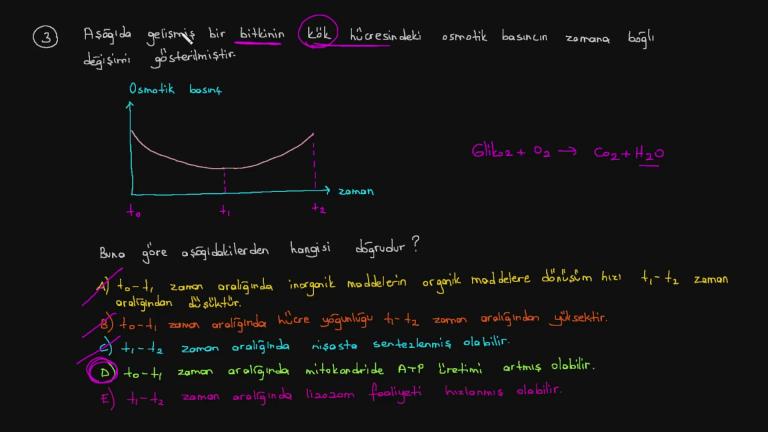 3 Aşağıda gelişmiş bir bitkinin kök hücresindeki osmotik basıncın zamana bağlı
değişimi gösterilmiştir.
Osmotik basınç
Glikoz + O2 → CO2 + H2O
zaman
t0 t1 t2
Buna göre aşağıdakilerden hangisi doğrudur?
A) t0-t1 zaman aralığında inorganik maddelerin organik maddelere dönüşüm hızı t1-t2 zaman
aralığından düşüktür.
B) t0-t1 zaman aralığında hücre yoğunluğu t1-t2 zaman aralığından yüksektir.
C) t1-t2 zaman aralığında nişasta sentezlenmiş olabilir.
D) t0-t1 zaman aralığında mitokondride ATP üretimi artmış olabilir.
E) t1-t2 zaman aralığında lizozom faaliyeti hızlanmış olabilir.